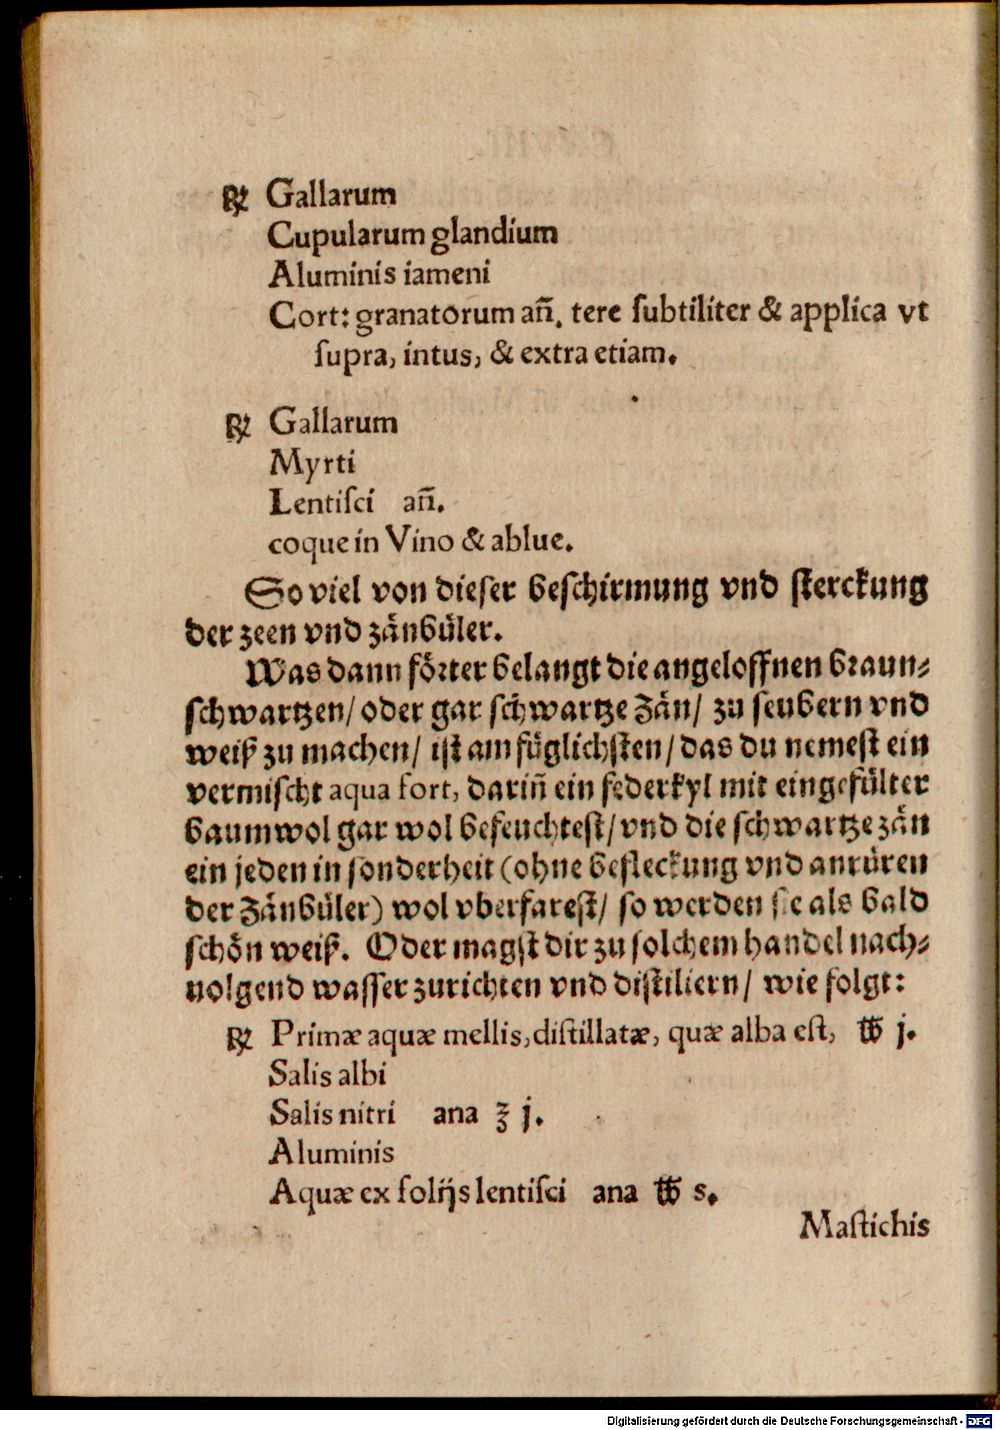 ℞ Gallarum
Cupularum glandium
Aluminis iameni
Cort: granatorum añ. tere ſubtiliter & applica vt
ſupra, intus, & extra etiam.
℞ Gallarum
Myrti
Lentiſci añ.
coque in Vino & ablue.
So viel von dieſer beſchirmung vnd ſterckung
der zeen vnd zånbůler.
Was dann fo̊rter belangt die angeloffnen braun⸗
ſchwartzen/ oder gar ſchwartze Zån/ zu ſeubern vnd
weiß zu machen/ iſt am fůglichſten/ das du nemeſt ein
vermiſcht aqua fort, dariñ ein federkyl mit eingefůlter
baumwol gar wol befeuchteſt/ vnd die ſchwartze zån
ein jeden in ſonderheit (ohne befleckung vnd anrůren
der Zånbůler) wol vberfareſt/ ſo werden ſie als bald
ſcho̊n weiß. Oder magſt dir zu ſolchem handel nach⸗
uolgend waſſer zurichten vnd diſtiliern/ wie folgt:
℞ Primæ aquæ mellis, diſtillatæ, quæ alba eſt, ℔ j.
Salis albi
Salis nitri ana ℥ j.
Aluminis
Aquæ ex folijs lentiſci ana ℔ s.
Maſtichis
Digitalisierung gefördert durch die Deutsche Forschungsgemeinschaft - DFG